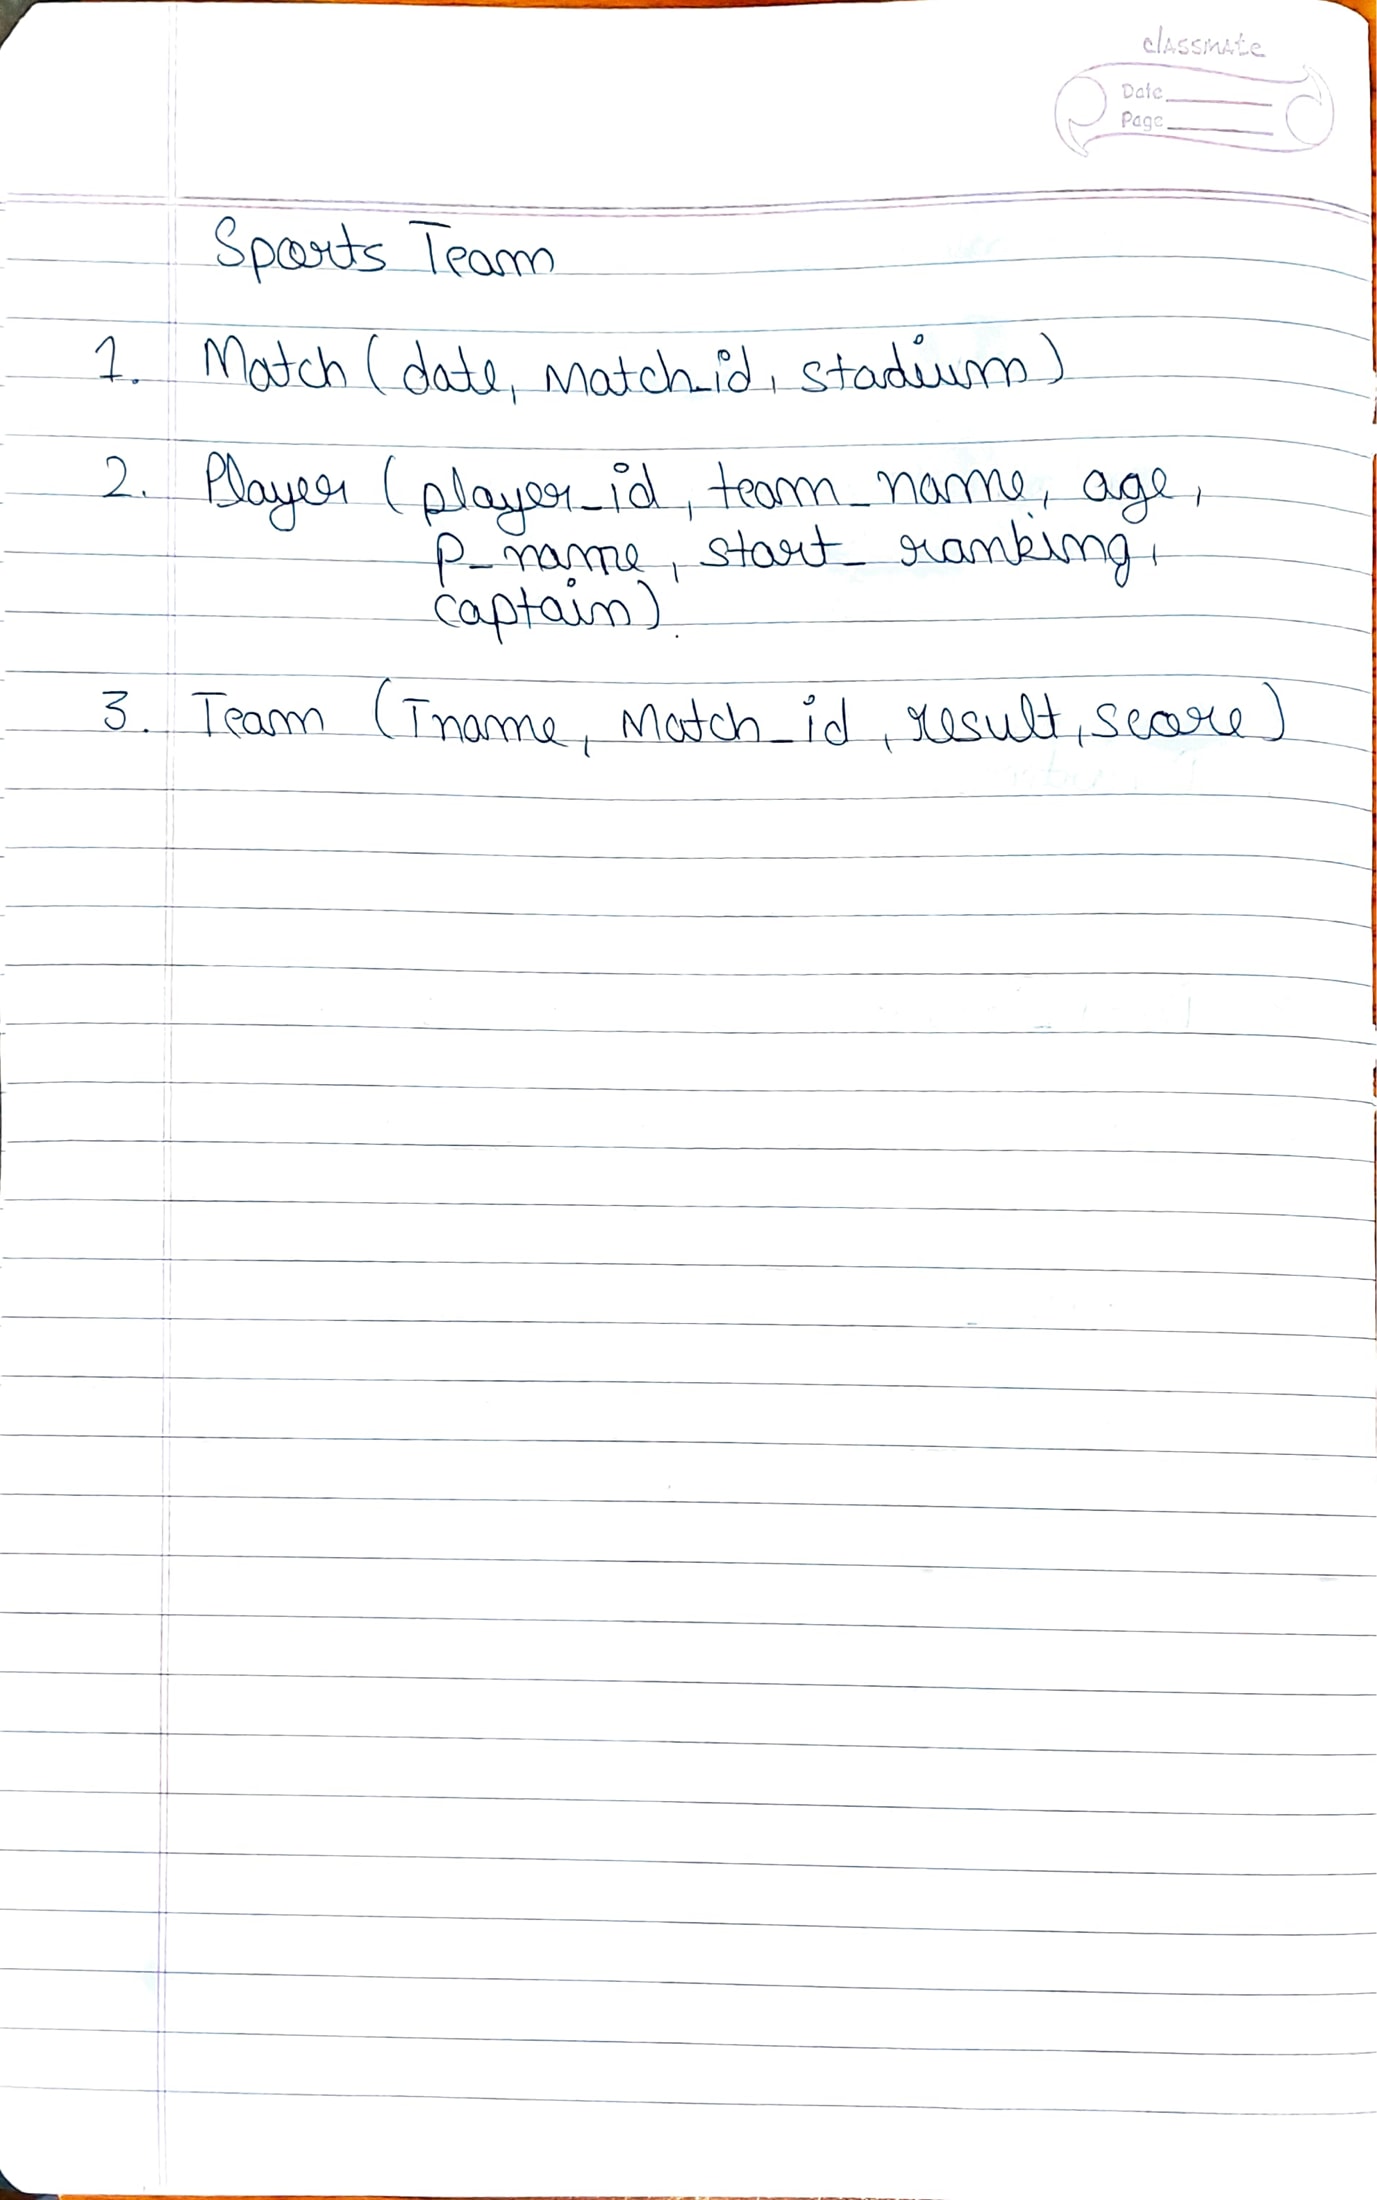 classmate
Date
Page
Sports Team
1. Match (date, Match_id, stadium)
2. Player (player_id, team_name, age,
p_name, start_ranking,
captain).
3. Team (Tname, Match_id, result, score)